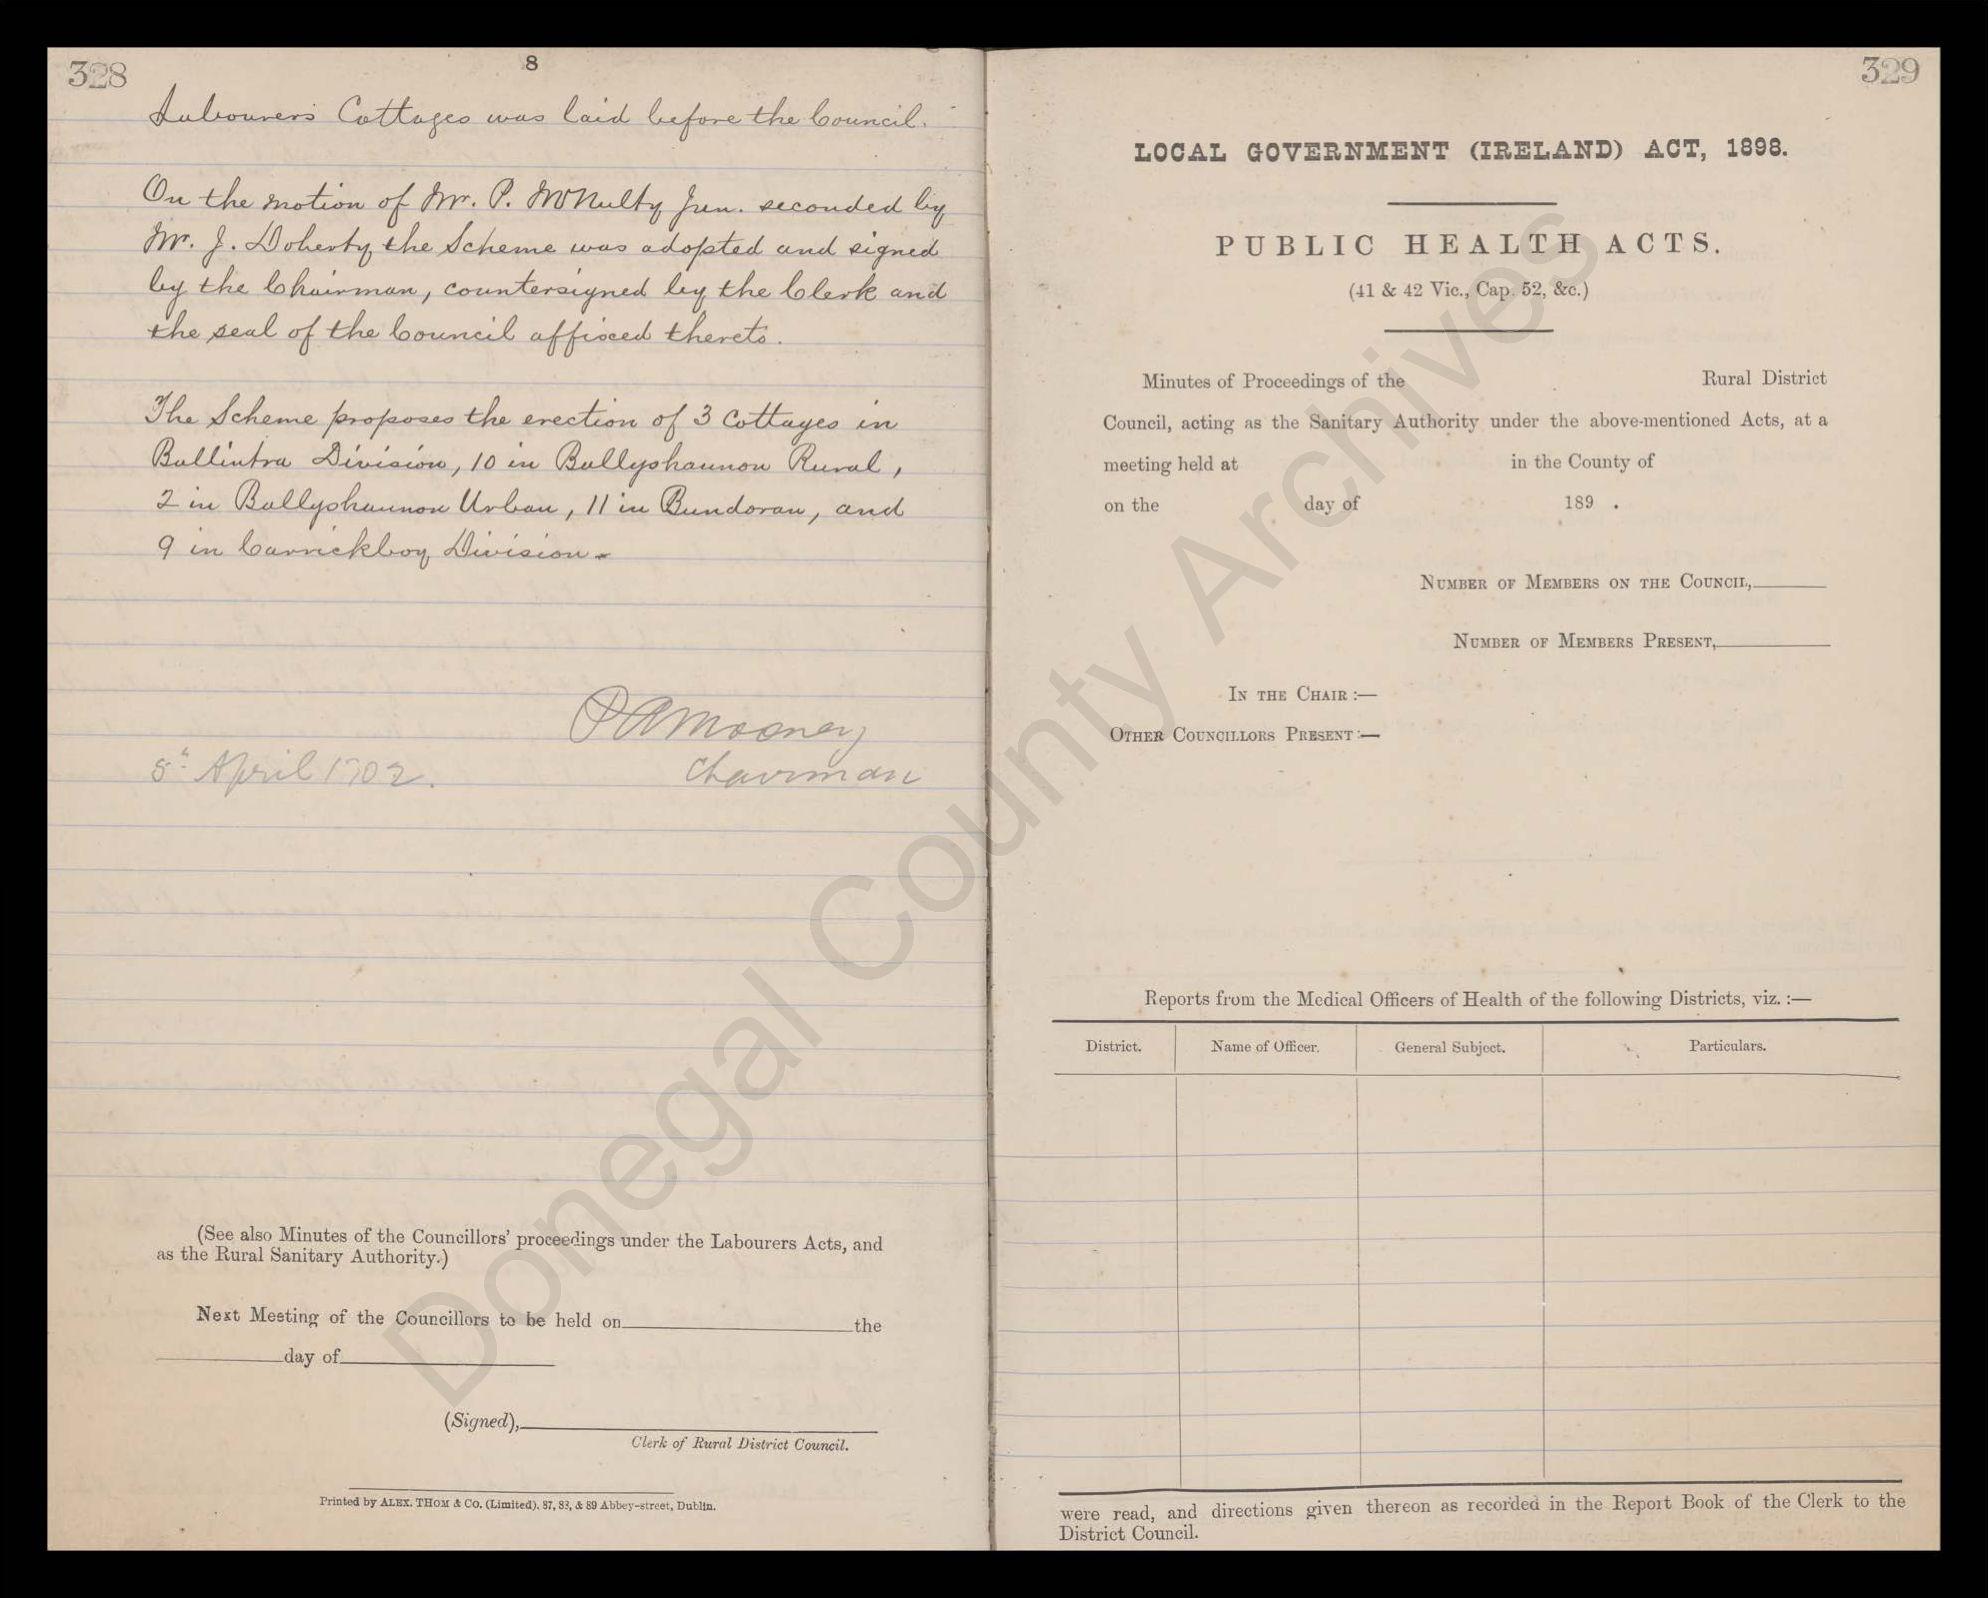 328
8
Labourers Cottages was laid before the Council.
On the motion of Mr. P. McNulty Jun. seconded by
Mr. J. Doherty the Scheme was adopted and signed
by the Chairman, countersigned by the Clerk and
the seal of the Council affixed thereto.
The Scheme proposes the erection of 3 Cottages in
Ballintra Division, 10 in Ballyshannon Rural,
2 in Ballyshannon Urban, 11 in Bundoran, and
9 in Carrickboy Division.
P A Mooney
Chairman
5th April 1902.
(See also Minutes of the Councillors' proceedings under the Labourers Acts, and
as the Rural Sanitary Authority.)
Next Meeting of the Councillors to be held on the
day of
(Signed),
Clerk of Rural District Council.
Printed by ALEX. THOM & CO. (Limited), 87, 88, & 89 Abbey-street, Dublin.
329
LOCAL GOVERNMENT (IRELAND) ACT, 1898.
PUBLIC HEALTH ACTS.
(41 & 42 Vic., Cap. 52, &c.)
Minutes of Proceedings of the Rural District
Council, acting as the Sanitary Authority under the above-mentioned Acts, at a
meeting held at in the County of
on the day of 189 .
NUMBER OF MEMBERS ON THE COUNCIL,
NUMBER OF MEMBERS PRESENT,
IN THE CHAIR :—
OTHER COUNCILLORS PRESENT :—
Reports from the Medical Officers of Health of the following Districts, viz. :—
District. Name of Officer. General Subject. Particulars.
were read, and directions given thereon as recorded in the Report Book of the Clerk to the
District Council.
Donegal County Archives